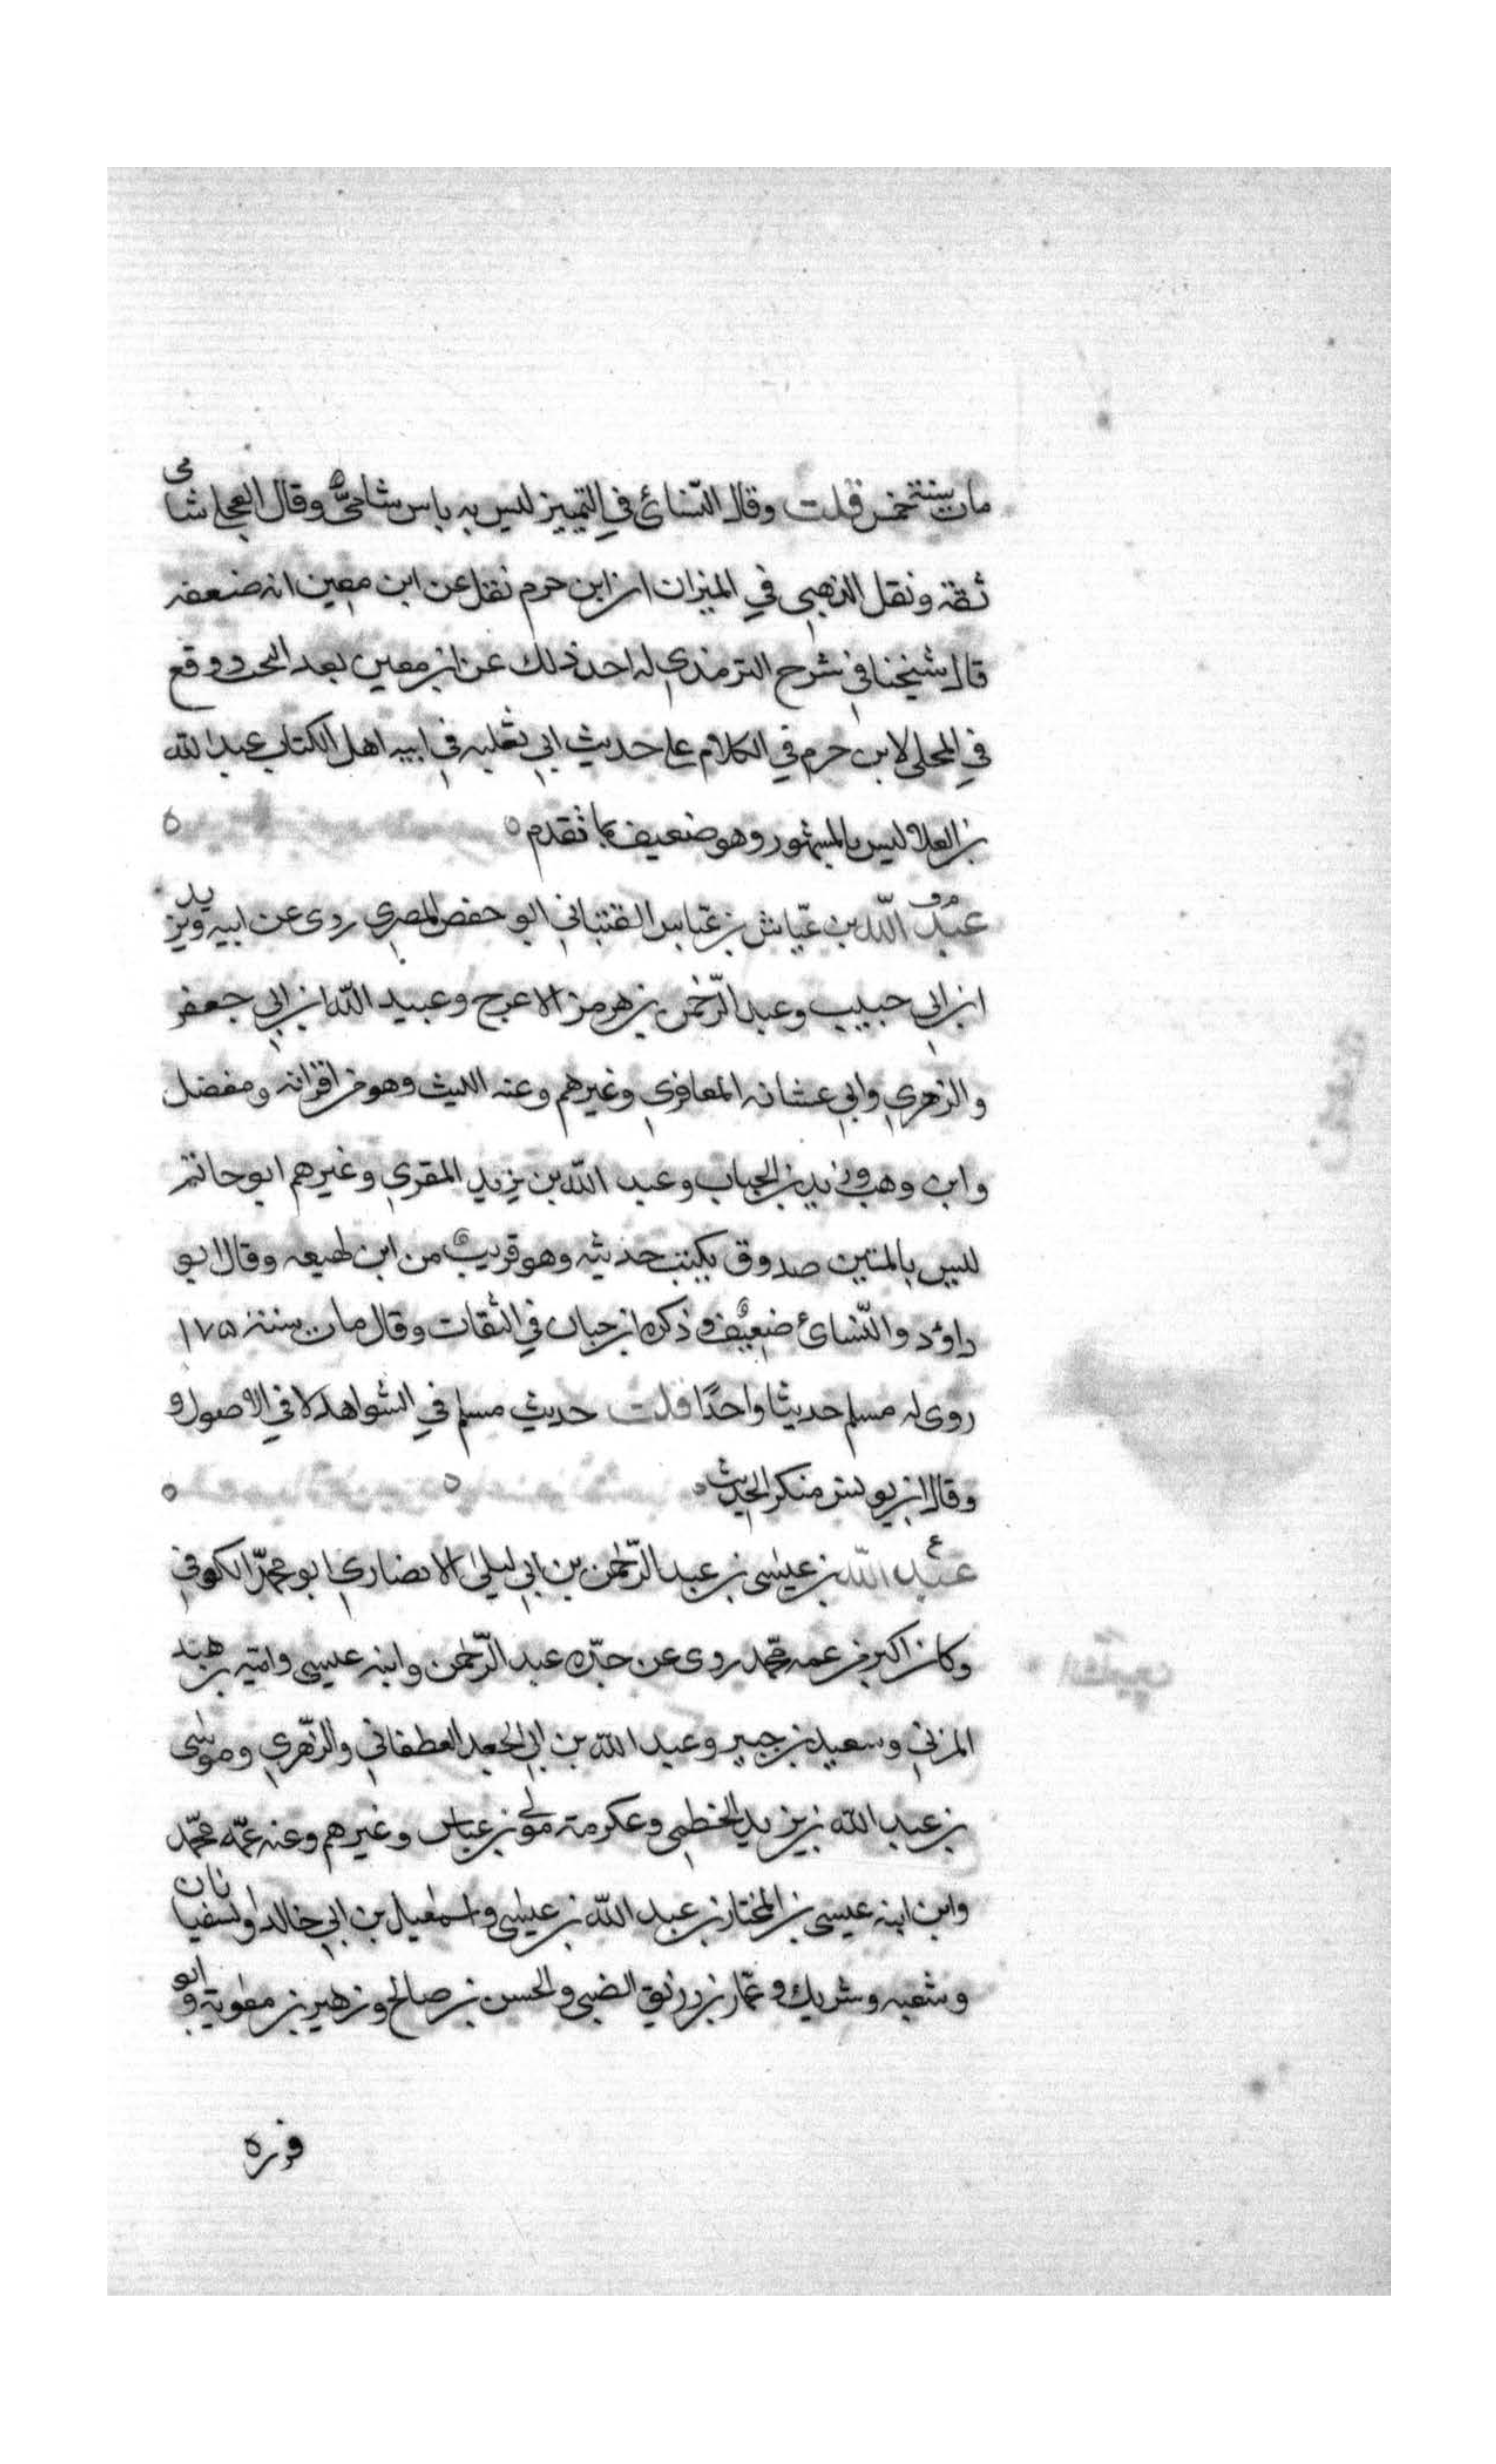 مات سنة خمس قلت وقال النسائي في التمييز ليس به باس شامي وقال العجلي شامي
ثقة ونقل الذهبي في الميزان ان ابن حزم نقل عن ابن معين انه ضعفه
قال شيخنا في شرح الترمذي لم اجد ذلك عن ابن معين بعد البحث ووقع
في المحلى لابن حزم في الكلام على حديث ابي ثعلبه في انيه اهل الكتاب عبد الله
بن العلا ليس بالمشهور وهو ضعيف كما تقدم
عبد الله بن عياش بن عباس القتباني ابو حفص المصري روى عن ابيه ويزيد
ابن ابي حبيب وعبد الرحمن بن هرمز الاعرج وعبيد الله ابن ابي جعفر
والزهري وابي عشانه المعافري وغيرهم وعنه الليث وهو من اقرانه ومفضل
وابن وهب وزيد بن الحباب وعبد الله بن يزيد المقري وغيرهم ابو حاتم
ليس بالمتين صدوق يكتب حديثه وهو قريب من ابن لهيعه وقال ابو
داود والنسائي ضعيف وذكره ابن حبان في الثقات وقال مات سنة ١٧٥
روى له مسلم حديثا واحدًا قلت حديث مسلم في الشواهد لا في الاصول و
وقال ابن يونس منكر الحديث
عبد الله بن عيسى بن عبد الرحمن بن ابي ليلى الانصاري ابو محمد الكوفي
وكان اكبر من عمه محمد روى عن جده عبد الرحمن وابنه عيسى واميه بن هند
المزني وسعيد بن جبير وعبد الله بن ابي الجعد الغطفاني والزهري وموسى
بن عبد الله بن يزيد الخطمي وعكرمة مولى بن عباس وغيرهم وعنه عمه محمد
وابن ابنه عيسى بن المختار بن عبد الله بن عيسى واسمعيل بن ابي خالد والسفيانان
وشعبه وشريك وعمار بن رزيق الضبي والحسن بن صالح وزهير بن معوية وابو
فره